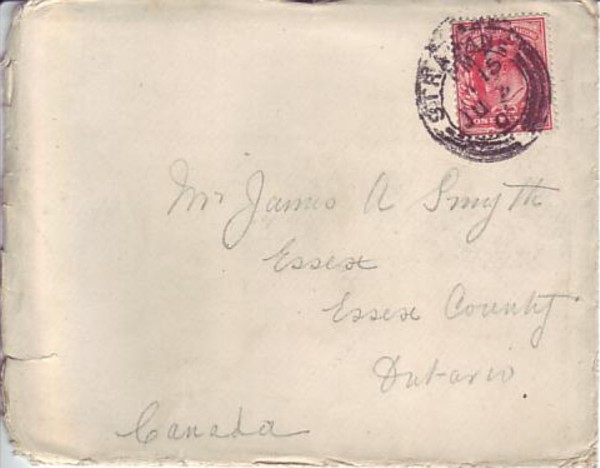 STRABAN
ONE
Mr James A Smyth
Essex
Essex County
Ontario
Canada